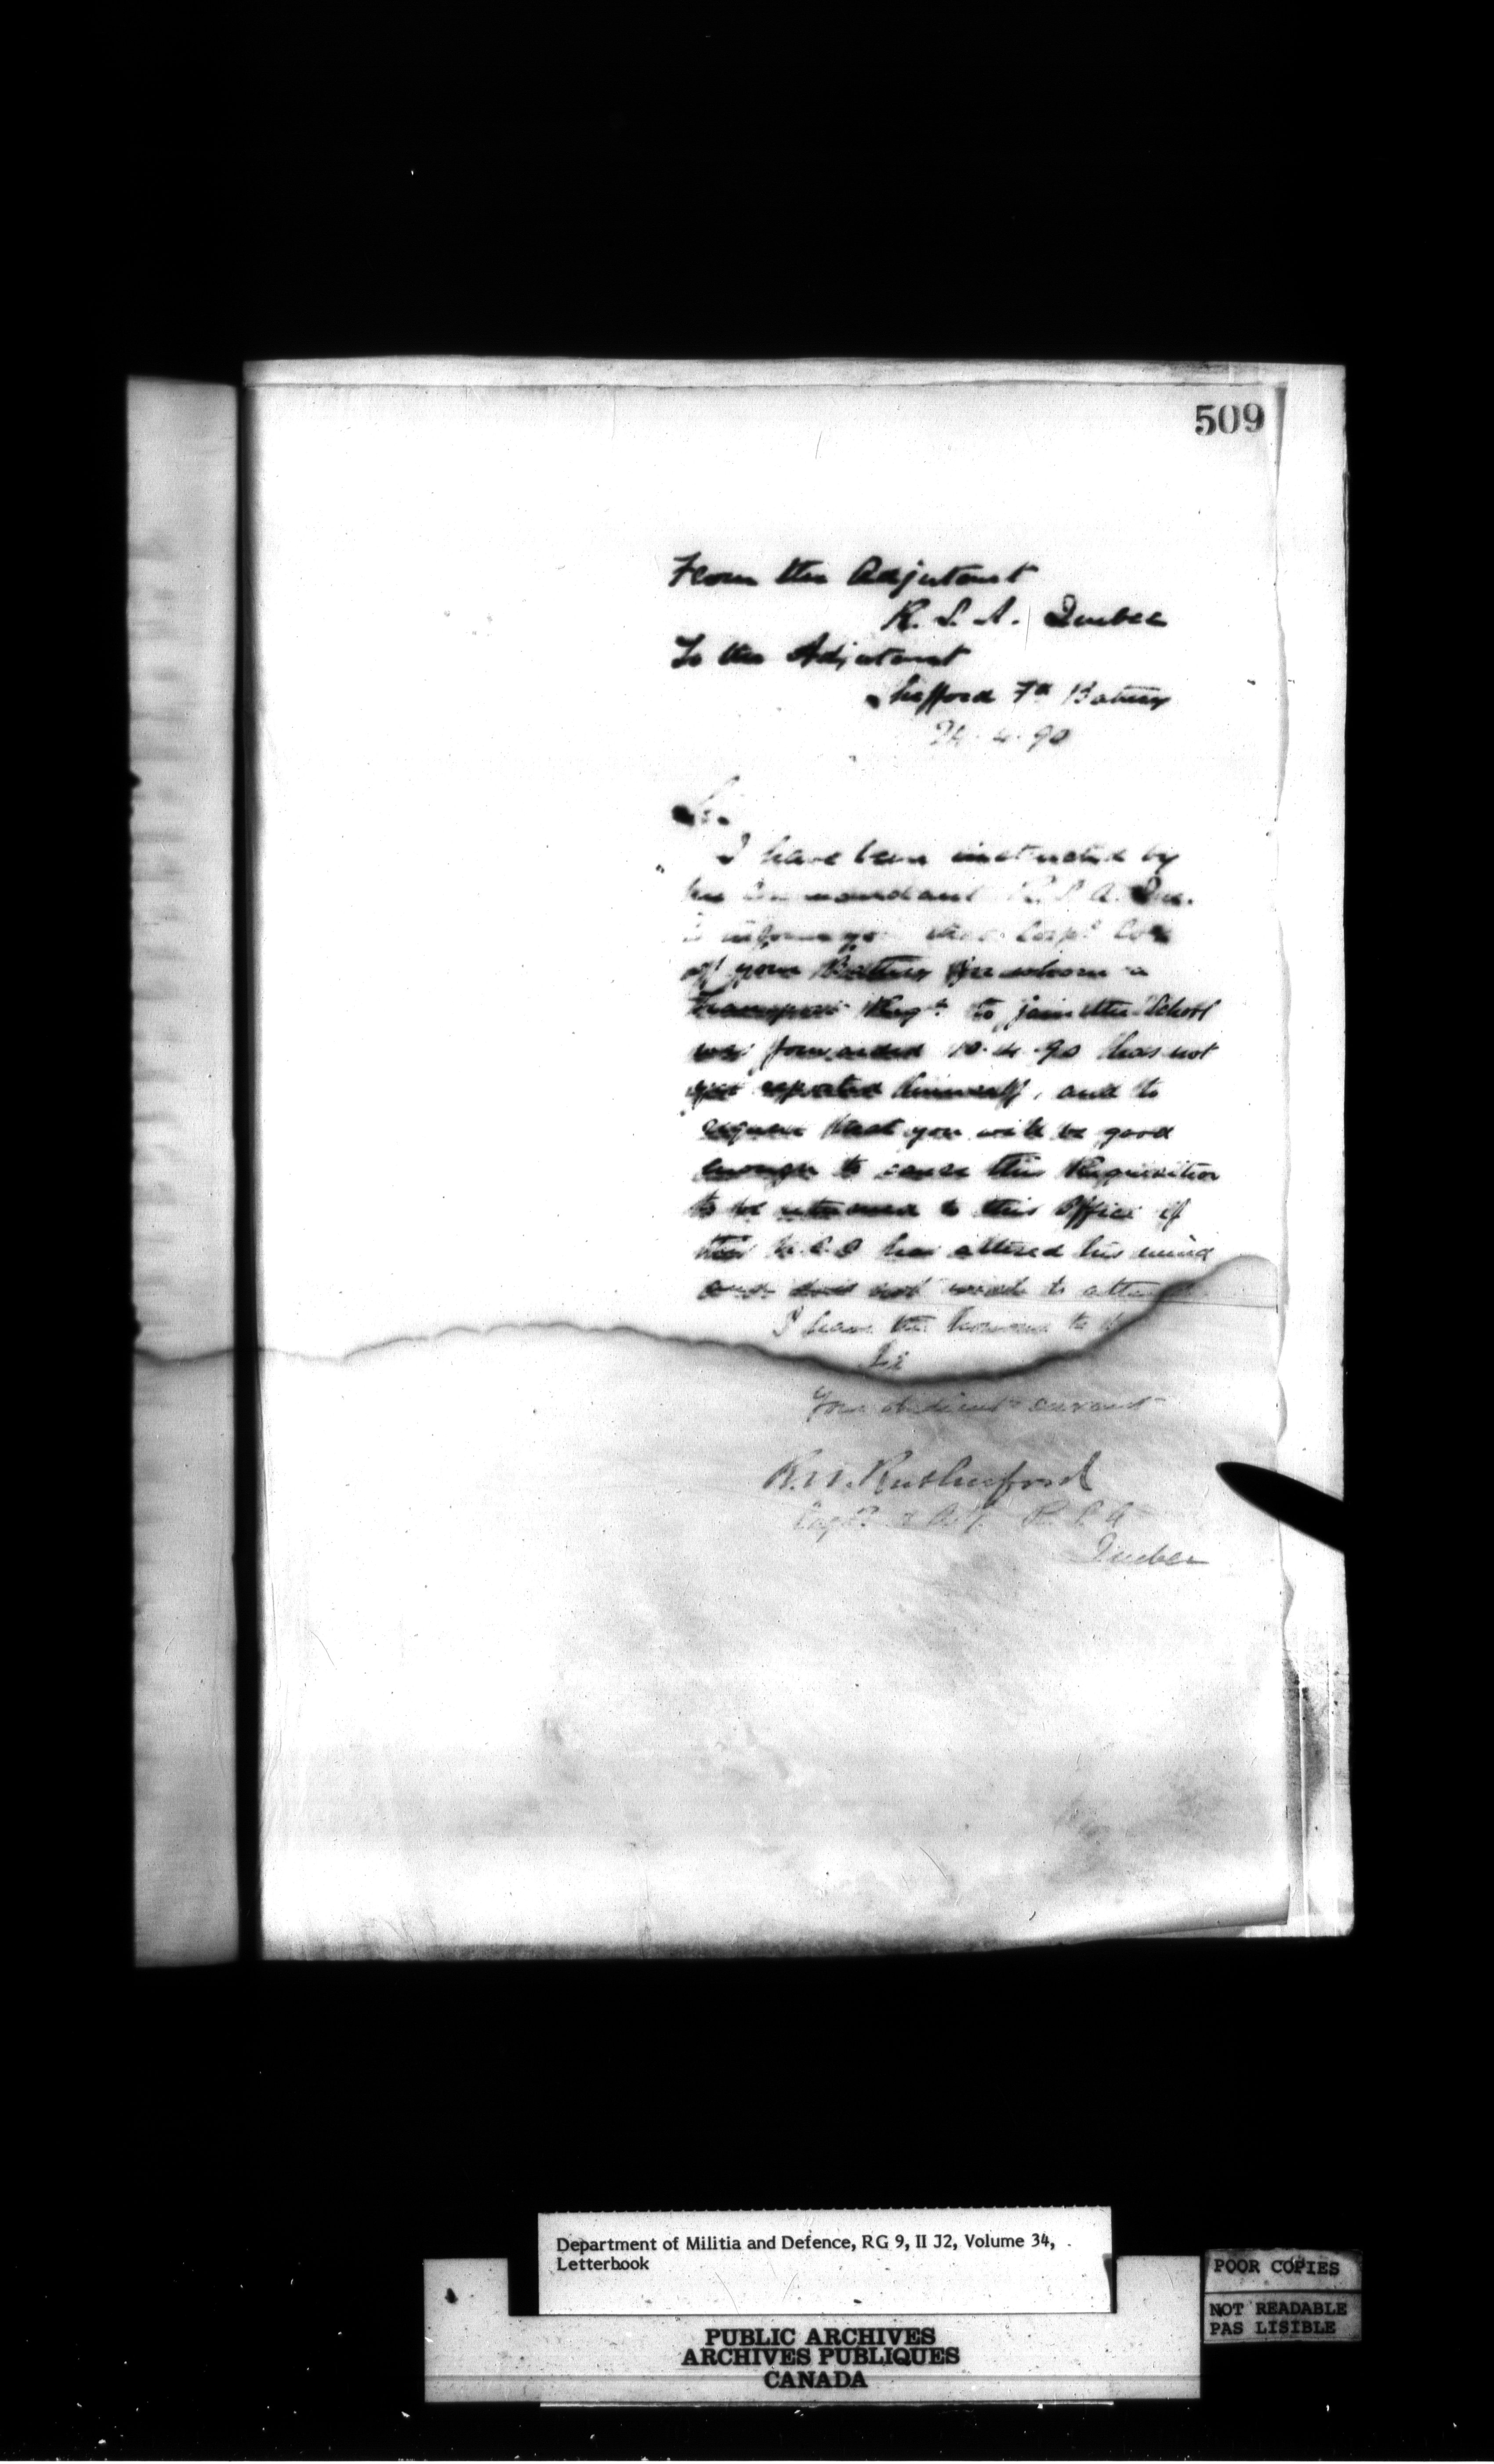 509
From the Adjutant
R. S. A. Quebec
To the Adjutant
Shefford Fd Battery
24. 4. 90
Sir
I have been instructed by
the Commandant R. S. A. Que.
to inform you that Corpl
of your Battery for whom a
Transport Reqn to join the School
was forwarded 10. 4. 90 has not
yet reported himself, and to
request that you will be good
enough to cause this Requisition
to be returned to this Office if
this N.C.O has altered his mind
and does not wish to attend
I have the honour to be
Sir
Your obedient servant
Rutherford
Capt & Adj. R. S. A
Quebec
Department of Militia and Defence, RG 9, II J2, Volume 34,
Letterbook
POOR COPIES
NOT READABLE
PAS LISIBLE
PUBLIC ARCHIVES
ARCHIVES PUBLIQUES
CANADA